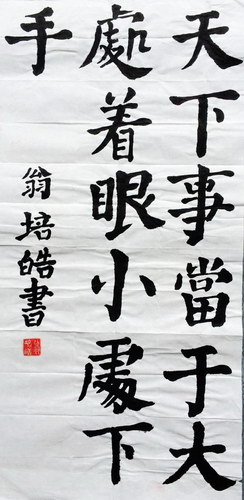 天下事當于大
處着眼小處下
手
翁培皓書